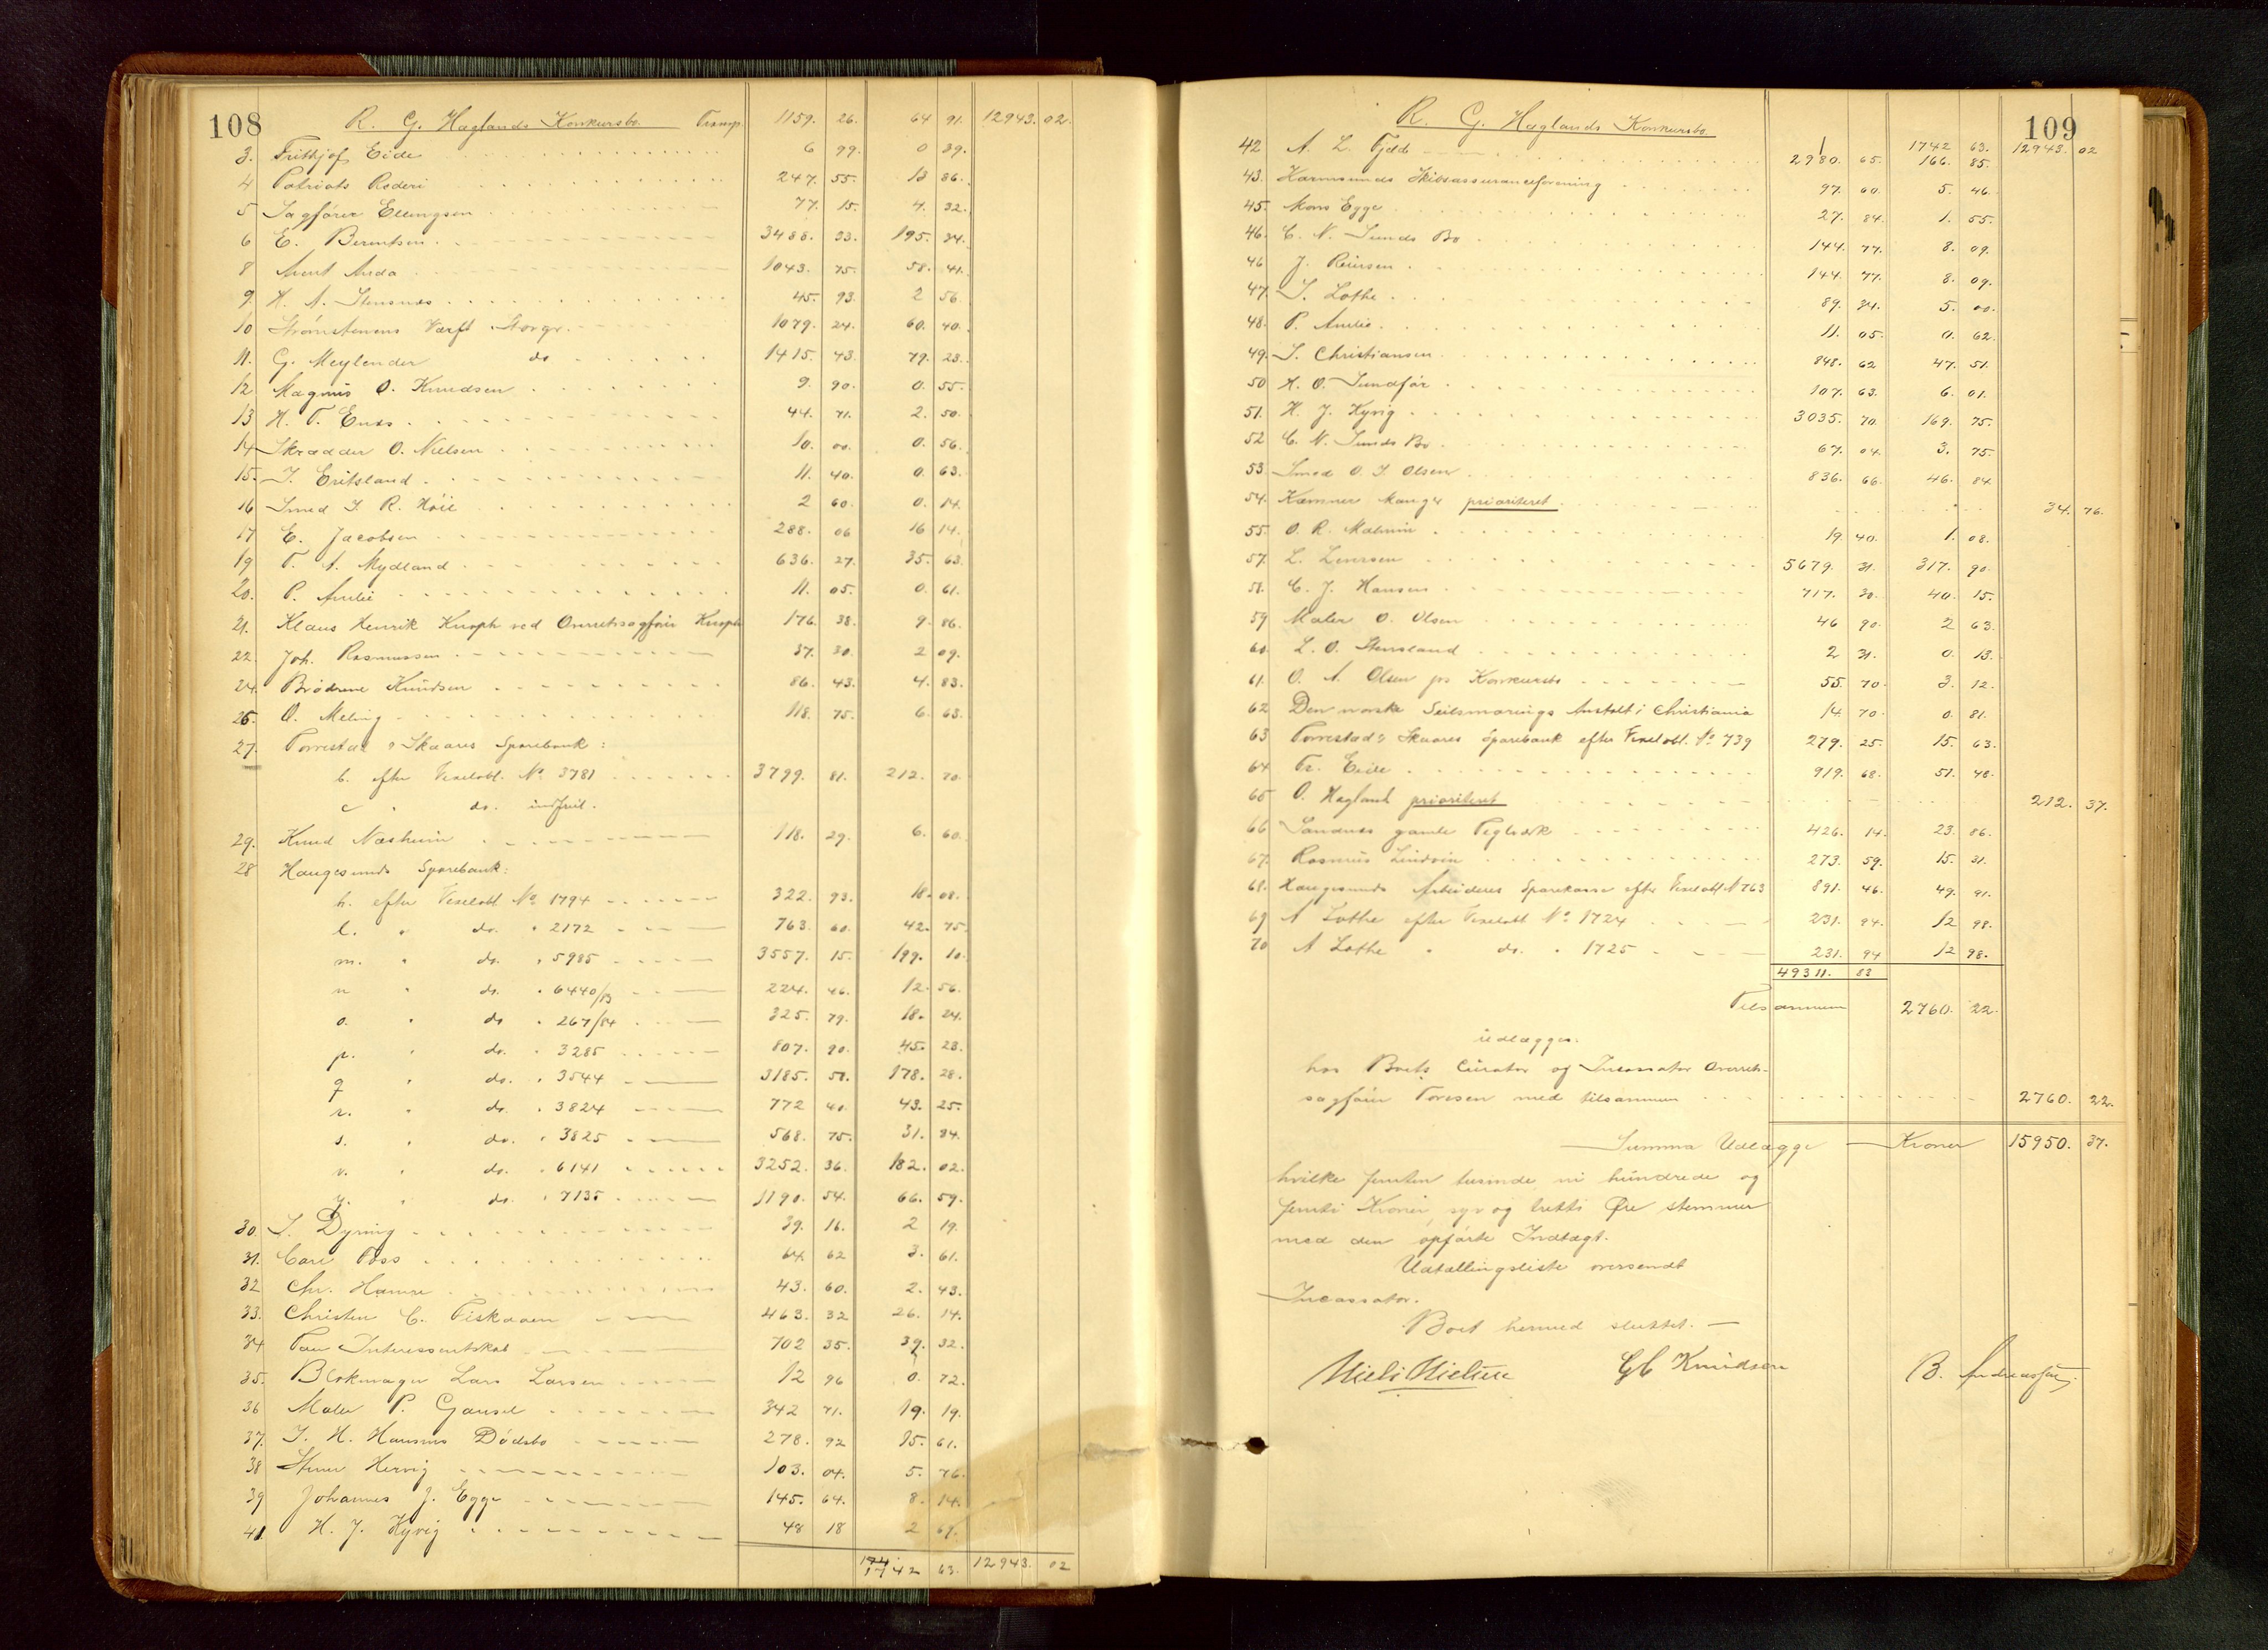 108
R. G. Haglands Konkursbo. Transp. 1159. 26. 64 91. 12943. 02.
3. Frithjof Eide 6 99. 0 39.
4 Patriots Rederi 247. 55. 13 86.
5 Sagfører Ellingsen 77. 15. 4. 32.
6 E. Berentsen 3488. 33. 195. 24.
8 Arent Anda 1043. 75. 58. 41.
9. H. A. Stensnæs 45. 93. 2 56.
10 Strømstenens Værft Storgr. 1079. 24. 60. 40.
11. G. Meylender do 1415. 43. 79. 23.
12 Magnus O. Knudsen 9. 90. 0. 55.
13 H. T. Enæs 44. 71. 2. 50.
14 Skrædder O. Nielsen 10. 00. 0. 56.
15. J. Eritsland 11. 40. 0. 63.
16 Smed J. R. Höie 2 60. 0. 14.
17 E. Jacobsen 288. 06 16 14.
19 T. A. Mydland 636. 27. 35. 63.
20. P. Amlie 11. 05. 0. 61.
21. Klaus Henrik Knoph ved Overretssagfører Knoph 176. 38. 9. 86.
22. Joh. Rasmussen 37. 30. 2 09.
24. Brödrene Knudsen 86. 43. 4. 83.
26. O. Meling 118. 75. 6. 63.
27. Torvestad & Skaares Sparebank:
b. efter Vexelobl. No. 3781 3799. 81. 212. 70.
c " do. indfriet.
29. Knud Næsheim 118. 29. 6. 60.
28 Haugesunds Sparebank:
h. efter Vexelobl. No 1794 322. 93. 18. 08.
l. " do. " 2172 763. 60. 42. 75.
m. " do. " 5985 3557. 15. 199. 10.
n " do. " 6440/83 224. 46. 12. 56.
o. " do " 267/84 325. 79. 18. 24.
p. " do. " 3285 807. 90. 45. 23.
q " do. " 3544 3185. 51. 178. 28.
r. " do. " 3824 772 40. 43. 25.
s. " do. " 3825 568. 75. 31. 84.
v. " do. " 6141 3252. 36. 182. 02.
y. " do. " 7135 1190. 54. 66. 59.
30. J. Dyring 39. 16. 2 19.
31. Carl Poss 64 62 3. 61.
32 Chr. Hamre 43. 60. 2. 43.
33. Christen C. Fiskaaen 463. 32 26. 14.
34 Pau Interessentskab 702 35. 39. 32.
35. Blokmager Lars Larsen 12 96 0. 72.
36 Maler P. Gausel 342 71. 19. 19.
37. J. H. Hansens Dödsbo 278. 92 15. 61.
38 Stener Hervig 103. 04. 5. 76.
39 Johannes J. Egge 145. 64. 8. 14.
41 H. J. Kyvig 48 18 2 69.
1742 63. 12943. 02
109
R. G. Haglands Konkursbo
1742 63. 12943. 02
42 A. L. Fjeld 2980. 65. 166. 85.
43. Karmsunds Skibsassuranceforening 97. 60. 5. 46.
45. Mons Egge 27. 84. 1. 55.
46. C. N. Sunds Bo 144. 77. 8. 09.
46 J. Reiersen 144. 77. 8. 09.
47. J. Lothe 89. 34. 5. 00.
48. P. Amlie 11. 05. 0. 62.
49. J. Christiansen 848. 62 47. 51.
50 H. O. Sundför 107. 63. 6. 01.
51. H. J. Kyvig 3035. 70. 169. 75.
52 C. N. Sunds Bo 67. 04. 3. 75.
53 Smed O. J. Olsen 836. 66. 46. 84
54. Kæmner Manger prioriteret 34. 76.
55. O. R. Malmin 19. 40. 1. 08.
57. L. Leversen 5679. 31. 317. 90.
58. C. J. Hansen 717. 30. 40. 15.
59 Maler O. Olsen 46 90. 2 63.
60 L. O. Stensland 2 31. 0. 13.
61. O. A. Olsen pr Konkursbo 55. 70. 3. 12.
62 Den norske Seilsmørings Anstalt i Christiania 14. 70. 0. 81.
63 Torvestad & Skaares Sparebank efter Vexelobl. No 739 279. 25. 15. 63.
64 Fr. Eide 919. 68. 51. 48.
65 O. Hagland prioriteret 212. 37.
66 Sandnes gamle Teglværk 426. 14. 23. 86.
67. Rasmus Lindøen 273. 59. 15. 31.
68. Haugesunds Arbeideres Sparekasse efter Vexelobl N 763 891. 46. 49. 91.
69 A Lothe efter Vexelobl No 1724 231. 94. 12 98.
70 A Lothe " do. " 1725 231. 94 12 98.
49311. 83
Tilsammen 2760. 22.
udlægges.
hos Boets Curator og Incassator Overrets-
sagfører Toresen med tilsammen 2760. 22.
Summa Udlægge Kroner 15950. 37.
hvilke femten tusinde ni hundrede og
femti Kroner, syv og tretti Øre stemmer
med den opførte Indtægt.
Udtællingsliste oversendt
Incassator.
Boet hermed sluttet. —
Niels Nielsen GC Knudsen B. Andreassen